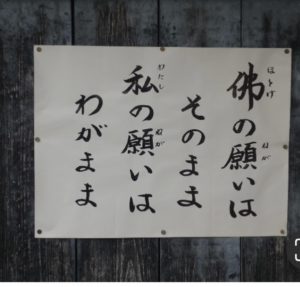 佛の願いは
そのまま
私の願いは
わがまま
ほとけ
ねが
わたし
ねが